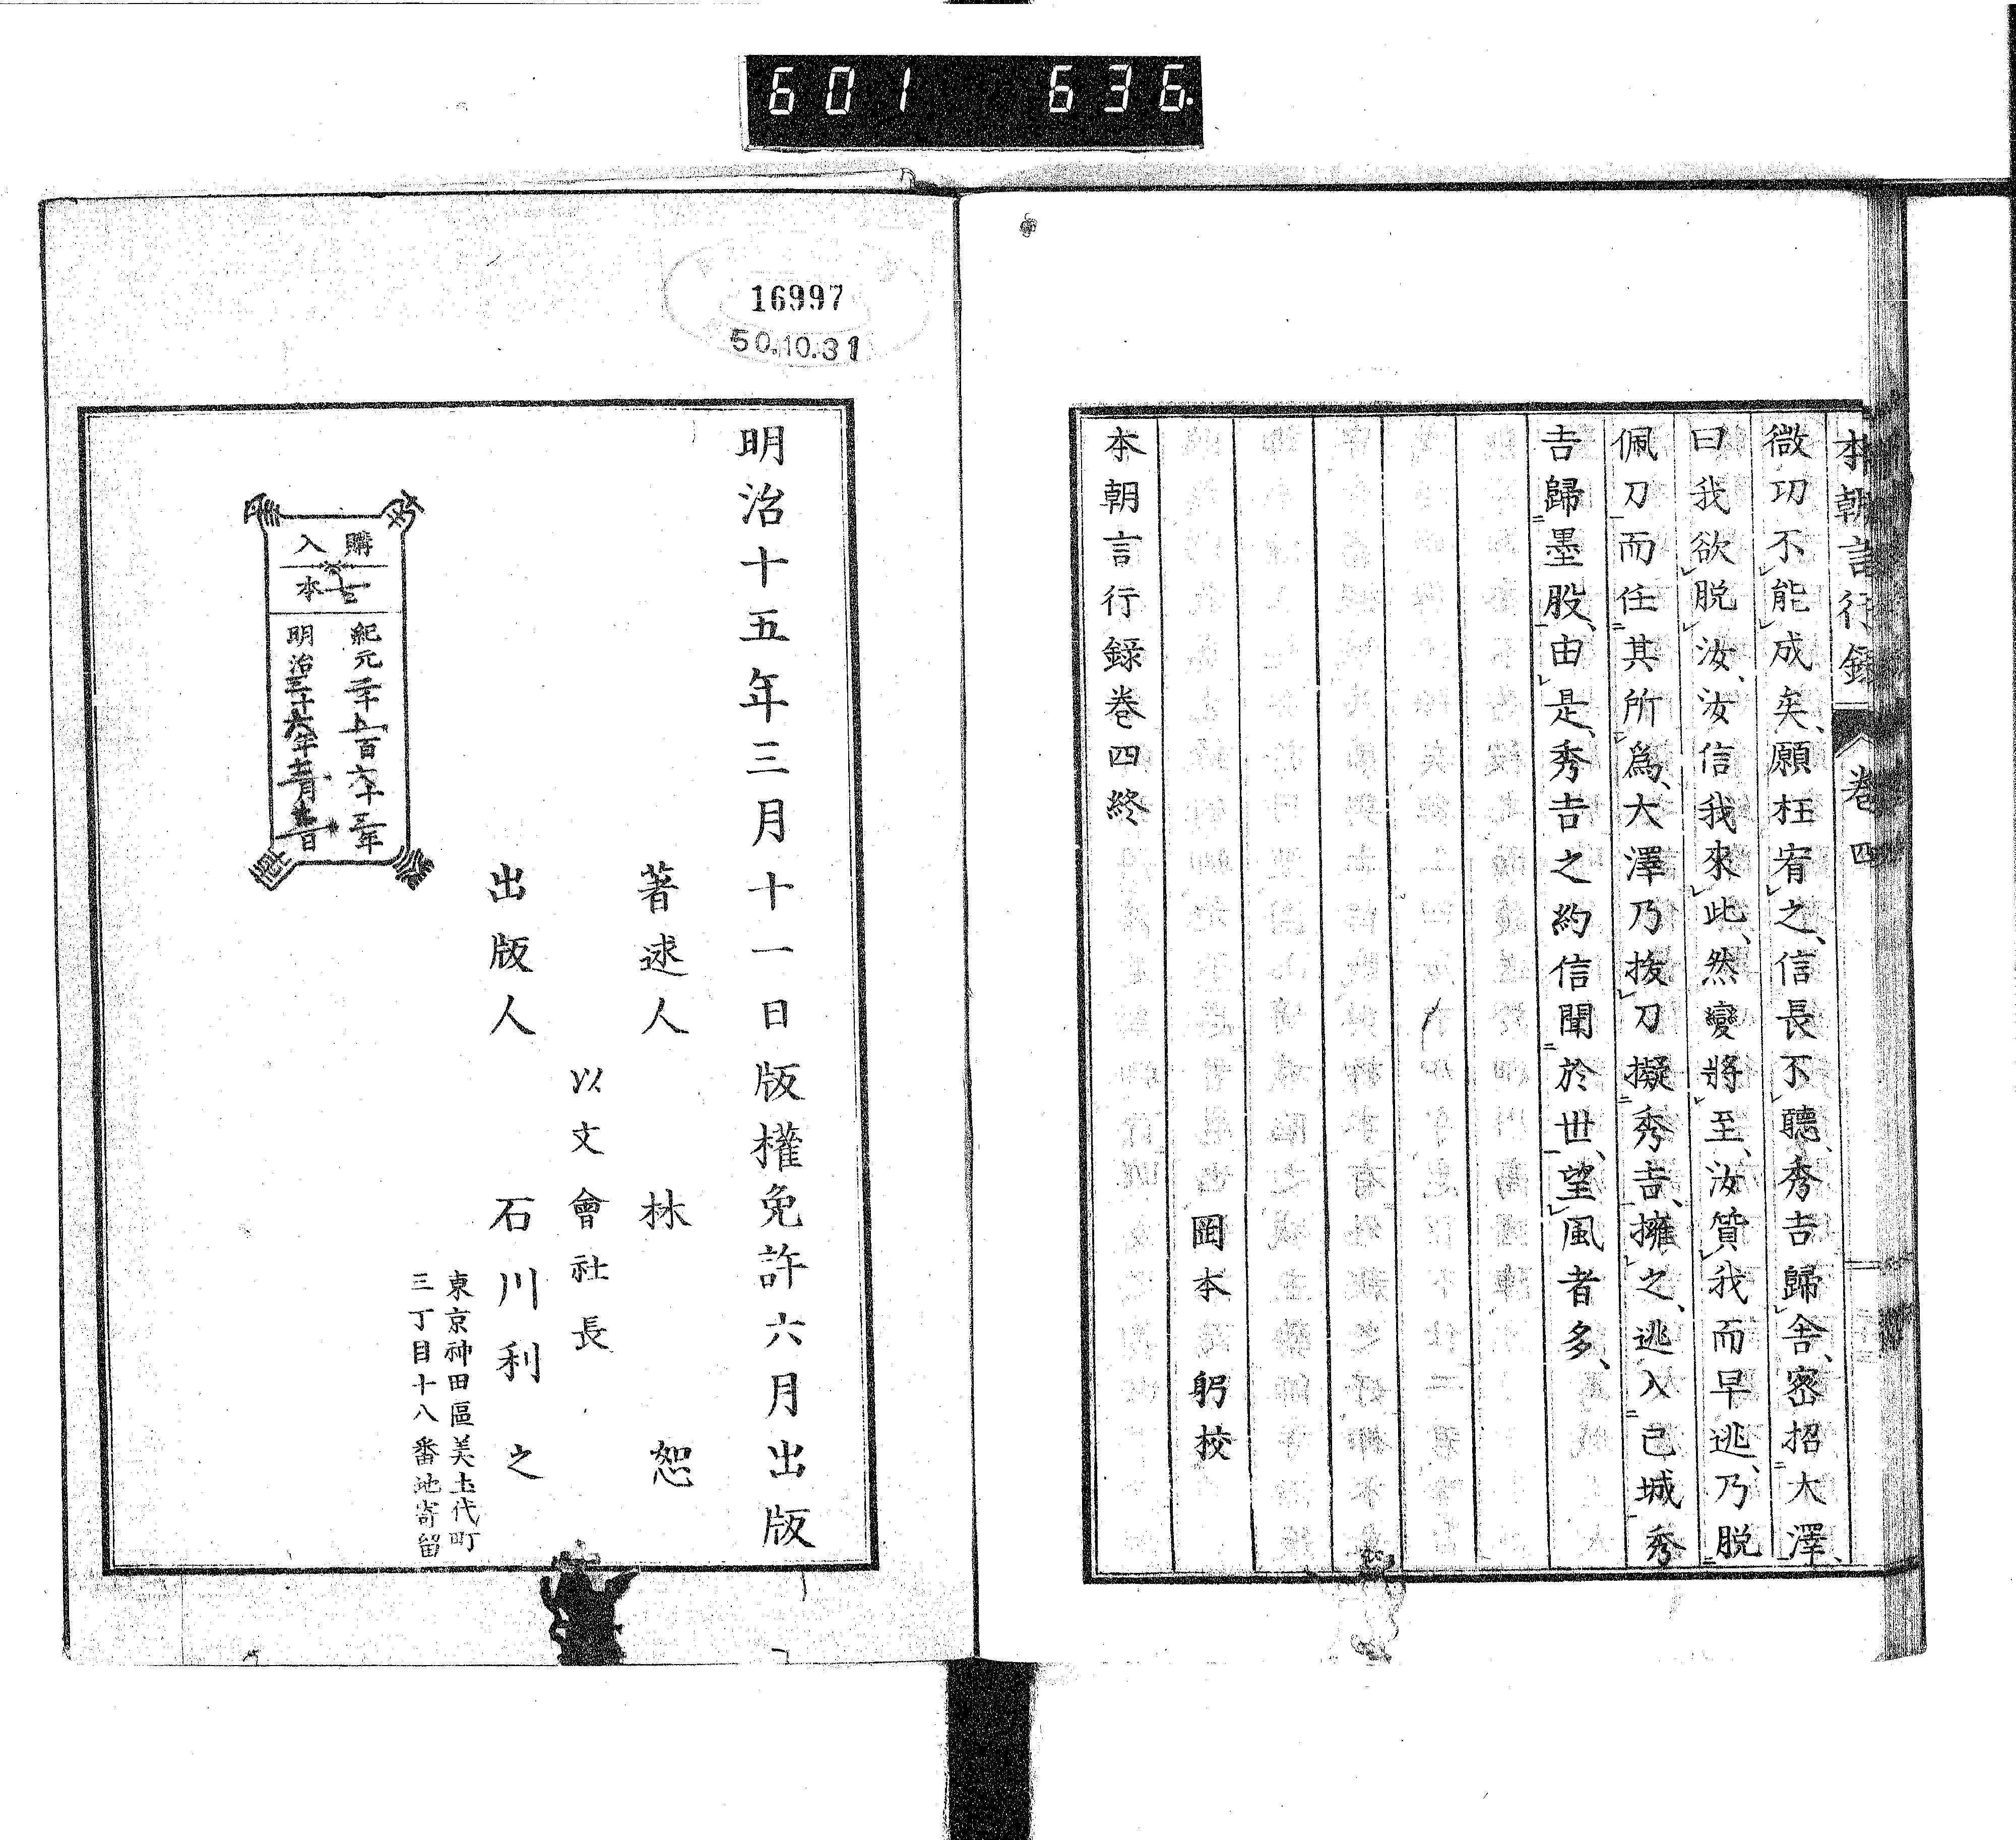 601 636.
本朝言行錄 卷四
微功不能成矣、願枉宥之、信長不聽、秀吉歸舍、密招大澤、
曰我欲脫汝、汝信我來此、然變將至、汝質我而早逃、乃脫
佩刀而任其所爲、大澤乃拔刀擬秀吉、擁之、逃入己城秀
吉歸墨股、由是、秀吉之約信聞於世、望風者多、
岡本躬校
本朝言行錄卷四終
16997
50.10.31
明治十五年三月十一日版權免許六月出版
著逑人 林恕
以文會社長
出版人 石川利之
東京神田區美土代町
三丁目十八番地寄留
購入
本
紀元二千五百六十三年
明治三十六年 月 日